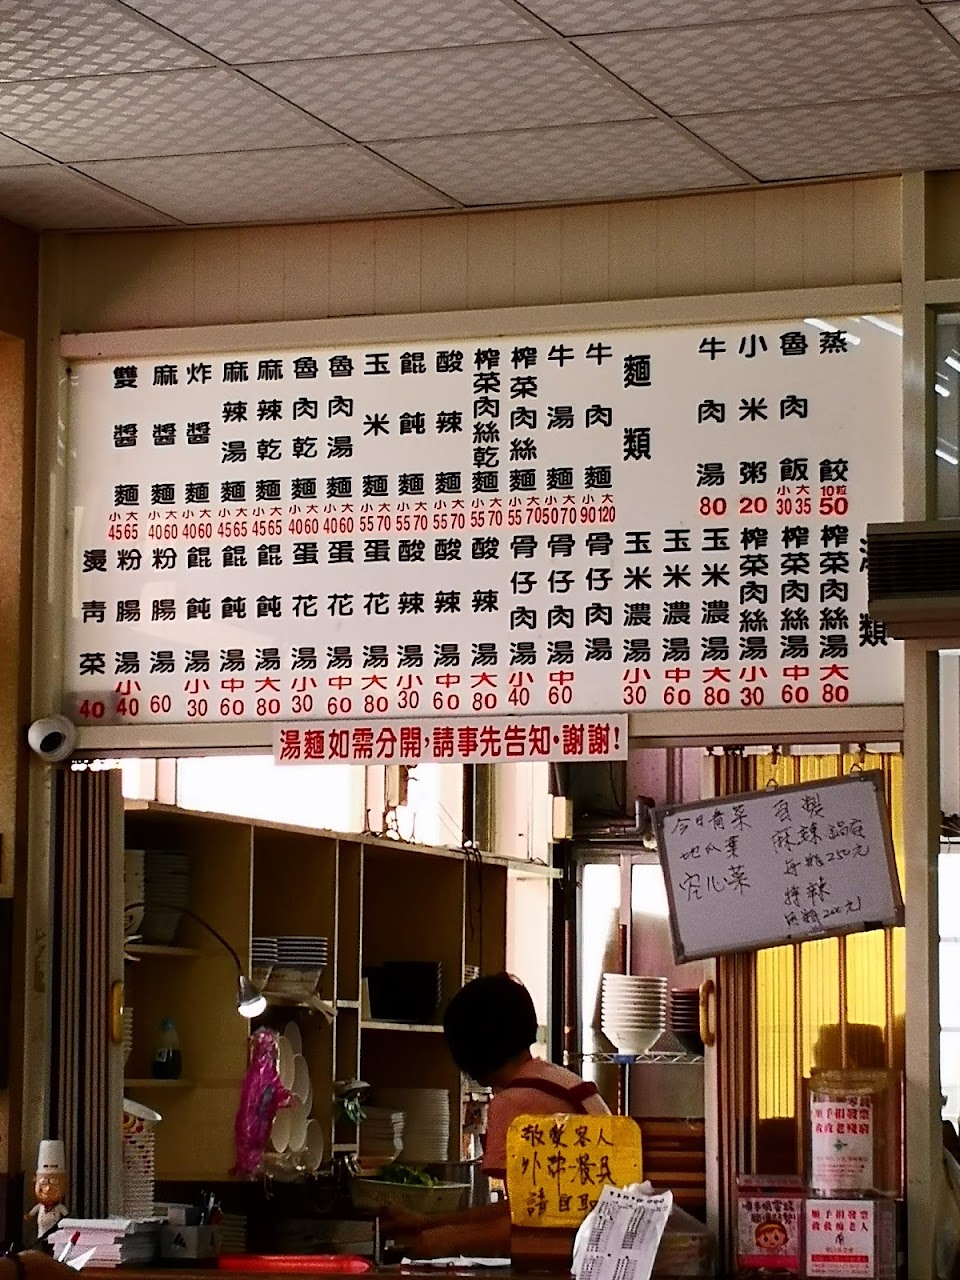 蒸餃 10粒 50
魯肉飯 小30 大35
小米粥 20
牛肉湯 80
麵類
牛肉麵 小90 大120
牛湯麵 小50 大70
榨菜肉絲麵 小55 大70
榨菜肉絲乾麵 小55 大70
酸辣麵 小55 大70
餛飩麵 小55 大70
玉米麵 小55 大70
魯肉湯麵 小40 大60
魯肉乾麵 小40 大60
麻辣乾麵 小45 大65
麻辣湯麵 小45 大65
炸醬麵 小40 大60
麻醬麵 小40 大60
雙醬麵 小45 大65
類
榨菜肉絲湯 大80
榨菜肉絲湯 中60
榨菜肉絲湯 小30
玉米濃湯 大80
玉米濃湯 中60
玉米濃湯 小30
骨仔肉湯
骨仔肉湯 中60
骨仔肉湯 小40
酸辣湯 大80
酸辣湯 中60
酸辣湯 小30
蛋花湯 大80
蛋花湯 中60
蛋花湯 小30
餛飩湯 大80
餛飩湯 中60
餛飩湯 小30
粉腸湯 60
粉腸湯 小40
燙青菜 40
湯麵如需分開,請事先告知·謝謝!
今日青菜
地瓜葉
空心菜
自製
麻辣鍋底
每瓶250元
特辣
每瓶200元
敬愛客人
外帶餐具
請自取
順手捐發票
救救老殘窮
順手捐發票
救救老人